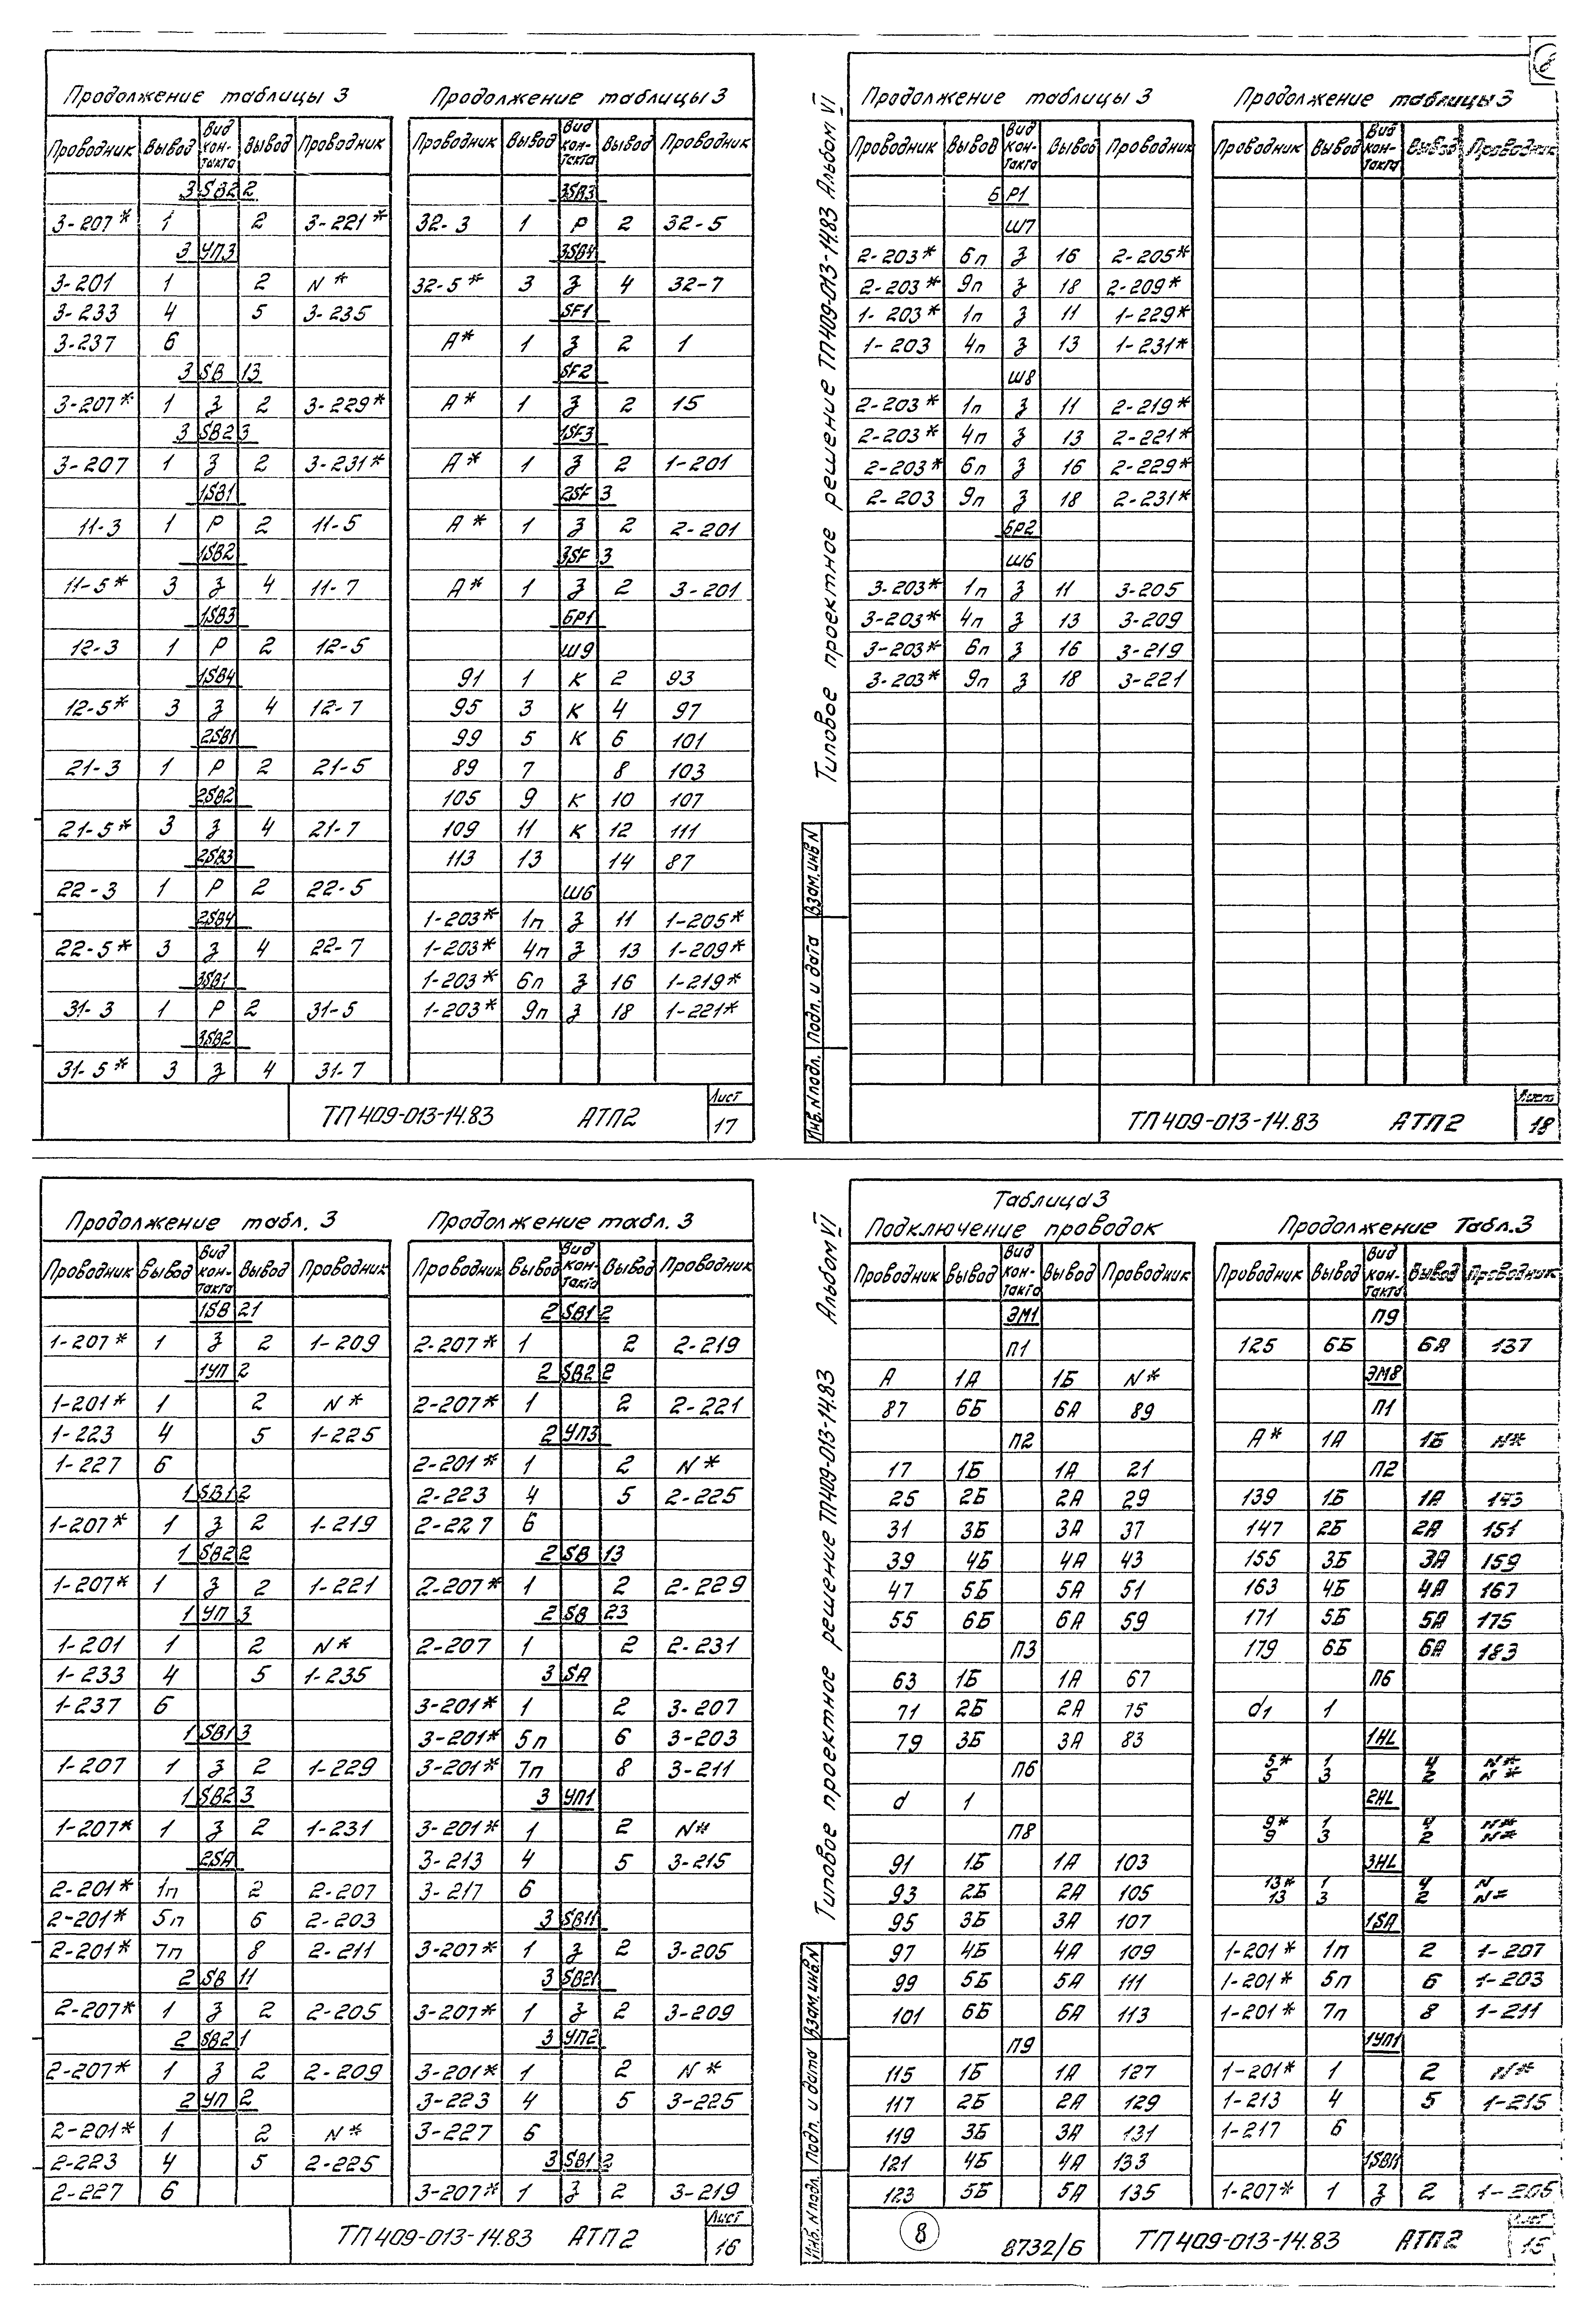 Продолжение таблицы 3
Проводник Вывод Вид контакта Вывод Проводник
3SB22
3-207* 1 2 3-221*
3УП3
3-201 1 2 N*
3-233 4 5 3-235
3-237 6
3SB13
3-207* 1 З 2 3-229*
3SB23
3-207 1 З 2 3-231*
1SB1
11-3 1 Р 2 11-5
1SB2
11-5* 3 З 4 11-7
1SB3
12-3 1 Р 2 12-5
1SB4
12-5* 3 З 4 12-7
2SB1
21-3 1 Р 2 21-5
2SB2
21-5* 3 З 4 21-7
2SB3
22-3 1 Р 2 22-5
2SB4
22-5* 3 З 4 22-7
3SB1
31-3 1 Р 2 31-5
3SB2
31-5* 3 З 4 31-7
Продолжение таблицы 3
Проводник Вывод Вид контакта Вывод Проводник
3SB3
32-3 1 Р 2 32-5
3SB4
32-5* 3 З 4 32-7
SF1
А* 1 З 2 1
SF2
А* 1 З 2 15
1SF3
А* 1 З 2 1-201
2SF3
А* 1 З 2 2-201
3SF3
А* 1 З 2 3-201
БР1
Ш9
91 1 К 2 93
95 3 К 4 97
99 5 К 6 101
89 7 8 103
105 9 К 10 107
109 11 К 12 111
113 13 14 87
Ш6
1-203* 1п З 11 1-205*
1-203* 4п З 13 1-209*
1-203* 6п З 16 1-219*
1-203* 9п З 18 1-221*
ТП409-013-14.83 АТП2
Лист
17
Типовое проектное решение ТП409-013-14.83 Альбом VI
Продолжение таблицы 3
Проводник Вывод Вид контакта Вывод Проводник
БР1
Ш7
2-203* 6п З 16 2-205*
2-203* 9п З 18 2-209*
1-203* 1п З 11 1-229*
1-203 4п З 13 1-231*
Ш8
2-203* 1п З 11 2-219*
2-203* 4п З 13 2-221*
2-203* 6п З 16 2-229*
2-203 9п З 18 2-231*
БР2
Ш6
3-203* 1п З 11 3-205
3-203* 4п З 13 3-209
3-203* 6п З 16 3-219
3-203* 9п З 18 3-221
Продолжение таблицы 3
Проводник Вывод Вид контакта Вывод Проводник
Инв.Nподл. Подп. и дата Взам.инвN
ТП409-013-14.83 АТП2
Лист
18
Продолжение табл. 3
Проводник Вывод Вид контакта Вывод Проводник
1SB21
1-207* 1 З 2 1-209
1УП2
1-201* 1 2 N*
1-223 4 5 1-225
1-227 6
1SB12
1-207* 1 З 2 1-219
1SB22
1-207* 1 З 2 1-221
1УП3
1-201 1 2 N*
1-233 4 5 1-235
1-237 6
1SB13
1-207 1 З 2 1-229
1SB23
1-207* 1 З 2 1-231
2SA
2-201* 1п 2 2-207
2-201* 5п 6 2-203
2-201* 7п 8 2-211
2SB11
2-207* 1 З 2 2-205
2SB21
2-207* 1 З 2 2-209
2УП2
2-201* 1 2 N*
2-223 4 5 2-225
2-227 6
Продолжение табл. 3
Проводник Вывод Вид контакта Вывод Проводник
2SB12
2-207* 1 2 2-219
2SB22
2-207* 1 2 2-221
2УП3
2-201* 1 2 N*
2-223 4 5 2-225
2-227 6
2SB13
2-207* 1 2 2-229
2SB23
2-207 1 2 2-231
3SA
3-201* 1 2 3-207
3-201* 5п 6 3-203
3-201* 7п 8 3-211
3УП1
3-201* 1 2 N*
3-213 4 5 3-215
3-217 6
3SB11
3-207* 1 З 2 3-205
3SB21
3-207* 1 З 2 3-209
3УП2
3-201* 1 2 N*
3-223 4 5 3-225
3-227 6
3SB12
3-207* 1 З 2 3-219
ТП409-013-14.83 АТП2
Лист
16
Типовое проектное решение ТП409-013-14.83 Альбом VI
Таблица 3
Подключение проводок
Проводник Вывод Вид контакта Вывод Проводник
ЭМ1
П1
А 1А 1Б N*
87 6Б 6А 89
П2
17 1Б 1А 21
25 2Б 2А 29
31 3Б 3А 37
39 4Б 4А 43
47 5Б 5А 51
55 6Б 6А 59
П3
63 1Б 1А 67
71 2Б 2А 75
79 3Б 3А 83
П6
d 1
П8
91 1Б 1А 103
93 2Б 2А 105
95 3Б 3А 107
97 4Б 4А 109
99 5Б 5А 111
101 6Б 6А 113
П9
115 1Б 1А 127
117 2Б 2А 129
119 3Б 3А 131
121 4Б 4А 133
123 5Б 5А 135
Продолжение Табл.3
Проводник Вывод Вид контакта Вывод Проводник
П9
125 6Б 6А 137
ЭМ8
П1
А* 1А 1Б N*
П2
139 1Б 1А 143
147 2Б 2А 151
155 3Б 3А 159
163 4Б 4А 167
171 5Б 5А 175
179 6Б 6А 183
П6
d1 1
1HL
5* 1 4 N*
5 3 2 N*
2HL
9* 1 4 N*
9 3 2 N*
3HL
13* 1 4 N
13 3 2 N*
1SA
1-201* 1п 2 1-207
1-201* 5п 6 1-203
1-201* 7п 8 1-211
1УП1
1-201* 1 2 N*
1-213 4 5 1-215
1-217 6
1SB11
1-207* 1 З 2 1-205
Инв.Nподл. Подп. и дата Взам.инвN
8
8732/6
ТП409-013-14.83 АТП2
Лист
15